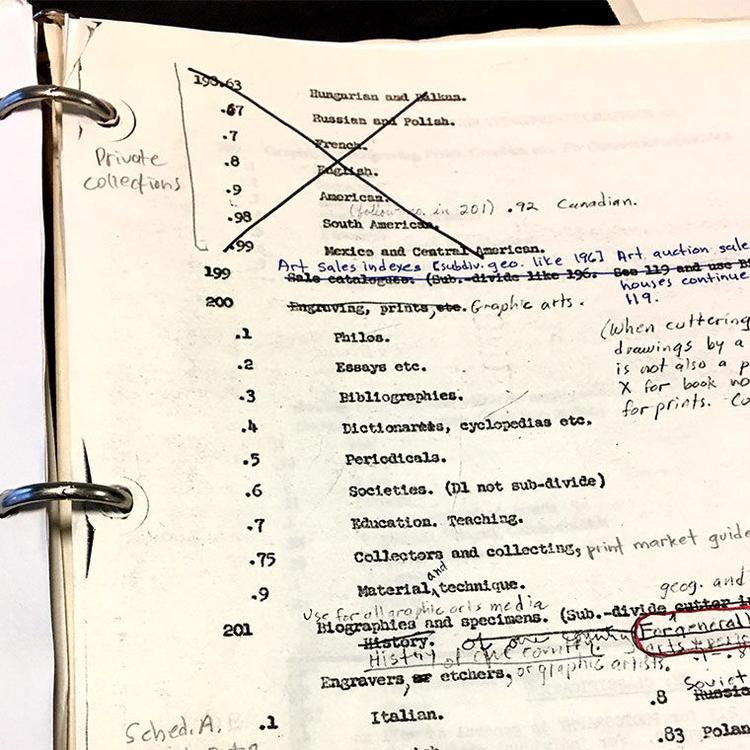 193.63 Hungarian and Balkan.
.67 Russian and Polish.
.7 French.
Private collections
.8 English.
.9 American.
(follow no. in 201) .92 Canadian.
.98 South American.
.99 Mexico and Central American.
Art Sales indexes [subdiv. geo. like 196] Art auction sale
199 Sale catalogues. (Sub.-divide like 196. See 119 and use
houses continue
119.
200 Engraving, prints, etc. Graphic arts.
.1 Philos.
(When cuttering
drawings by a
.2 Essays etc.
is not also a p
X for book no
.3 Bibliographies.
for prints.
.4 Dictionaries, cyclopedias etc.
.5 Periodicals.
.6 Societies. (D1 not sub-divide)
.7 Education. Teaching.
.75 Collectors and collecting, print market guide
.9 Material, and technique.
geog. and
Use for all graphic arts media
201 Biographies and specimens. (Sub.-divide cutter
For general
History. of one country
History of one country.
Engravers, or etchers, or graphic artists.
Soviet
.8 Russia
Sched. A. .1 Italian.
.83